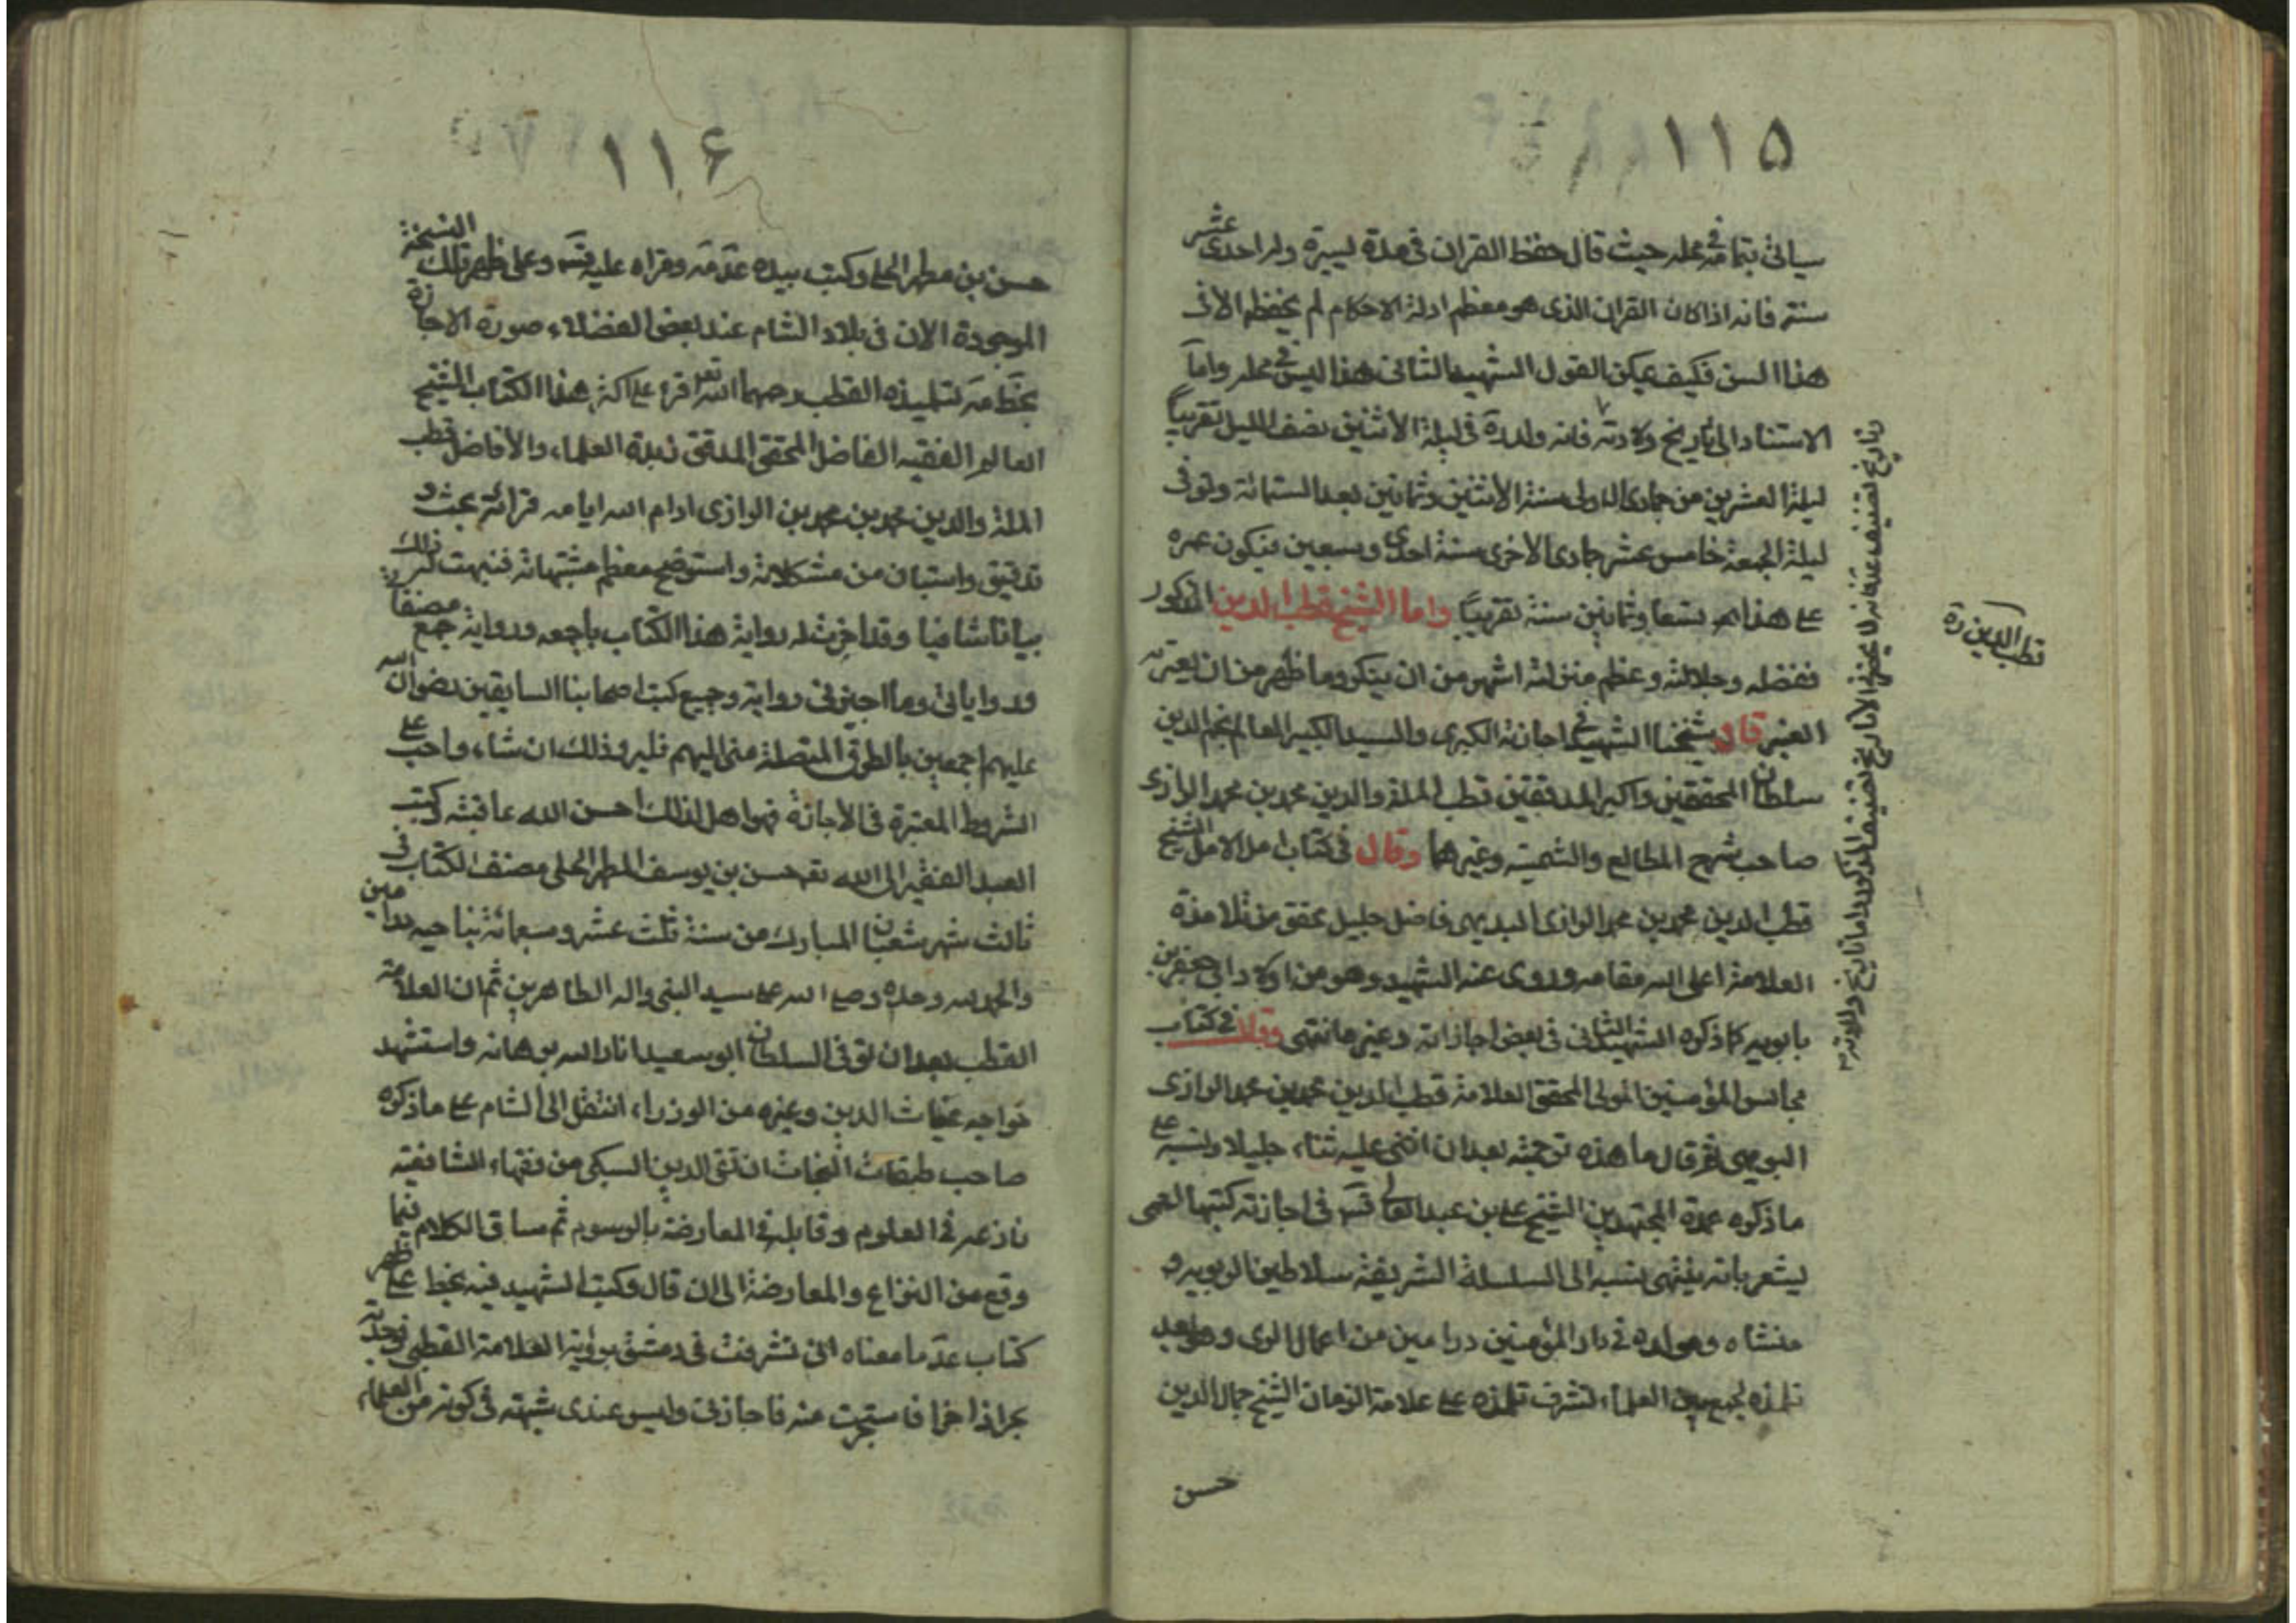 ١١٥
سيأتي بتمامه في محله حيث قال حفظ القران في مدة يسيرة وله احدى عشر
سنة فانه اذا كان القران الذى هو معظم ادلة الاحكام لم يحفظه الا في
هذا السن فكيف يمكن القول الشهيد الثانى هذا ليس في محله واما
الاستناد الى تاريخ ولادته فانه ولد ره في ليلة الأثنين نصف الليل تقريباً
ليلة العشرين من جمادى الاولى سنة الأثنين وثمانين بعد الستمائة وتوفى
ليلة الجمعة خامس عشر جمادى الاخرى سنة احدى وسبعين فيكون عمره
على هذا تسعا وثمانين سنة تقريباً واما الشيخ قطب الدين المذكور
ففضله وجلالته وعظم منزلته اشهر من ان يذكر وما ظهر من ان يعتريه
الغير قال شيخنا الشهيد في اجازته الكبرى والسيد الكبير العالم نجم الدين
سلطان المحققين واكبر المدققين قطب الملة والدين محمد بن محمد الرازى
صاحب شرح المطالع والشمسية وغيرهما وقال في كتاب امل الامل الشيخ
قطب الدين محمد بن محمد الرازى البويهى فاضل جليل محقق من تلامذة
العلامة اعلى الله مقامه وروى عنه الشهيد وهو من اولاد ابى جعفر بن
بابويه كما ذكره الشهيد الثانى في بعض اجازاته وغيره انتهى وقال في كتاب
مجالس المؤمنين المولى المحقق العلامة قطب الدين محمد بن محمد الرازى
البويهى ثم قال ما هذه ترجمته بعد ان اثنى عليه ثناء جليلا ونسبه على
ما ذكره عمدة المجتهدين الشيخ على بن عبد العالى قدس في اجازته كتبها
يشعر بانه ينتهى نسبه الى السلسلة الشريفة سلاطين ال بويه و
منشاه ومولده في دار المؤمنين درامين من اعمال الرى وهو بعد
تلمذه لجمع من العلماء تشرف تلمذه على علامة الزمان الشيخ جمال الدين
حسن
قطب الدين ره
١١۶
حسن بن مطهر الحلى وكتب بيده عدمه وقراه عليه قدس وعلى ظهر تلك النسخة
الموجودة الان في بلاد الشام عند بعض الفضلاء صورة الاجازة
بخطه لتلميذه القطب رحمهما الله تعالى قرء على اكثر هذا الكتاب الشيخ
العالم الفقيه الفاضل المحقق المدقق زبدة العلماء والأفاضل قطب
الملة والدين محمد بن محمد بن الرازى ادام الله ايامه قرائة بحث و
تدقيق واستبان من مشكلاته واستوضح معظم مشتبهاته فبينت له ذلك
بيانا شافيا وقد اجزت له رواية هذا الكتاب باجمعه ورواية جميع مصنفاتى
ورواياتى وما اجيز لى روايته وجميع كتب اصحابنا السابقين رضوان الله
عليهم اجمعين بالطرق المتصلة منى اليهم فليرو ذلك ان شاء واحب على
الشروط المعتبرة في الاجازة فهو اهل لذلك احسن الله عاقبته وكتب
العبد الفقير الى الله تعه حسن بن يوسف المطهر الحلى مصنف الكتاب في
ثالث شهر شعبان المبارك من سنة ثلث عشر وسبعمائة بناحية ورامين
والحمد لله وحده وصلى الله على سيد النبى واله الطاهرين ثم ان العلامة
القطب بعد ان توفى السلطان ابو سعيد انار الله برهانه واستشهد
خواجه غياث الدين وغيره من الوزراء انتقل الى الشام على ما ذكره
صاحب طبقات النحات ان تقى الدين السبكى من فقهاء الشافعية
نازعه في العلوم وقابله في المعارضة بالرسوم ثم ساق الكلام فيما
وقع من النزاع والمعارضة الى ان قال وكتب الشهيد فيه بخط على ظهر
كتاب عد ما معناه انى تشرفت في دمشق برؤية العلامة القطبى فوجدته
بحرا ذاخرا فاستجزت منه فاجازنى وليس عندى شبهة في كونه من العلماء